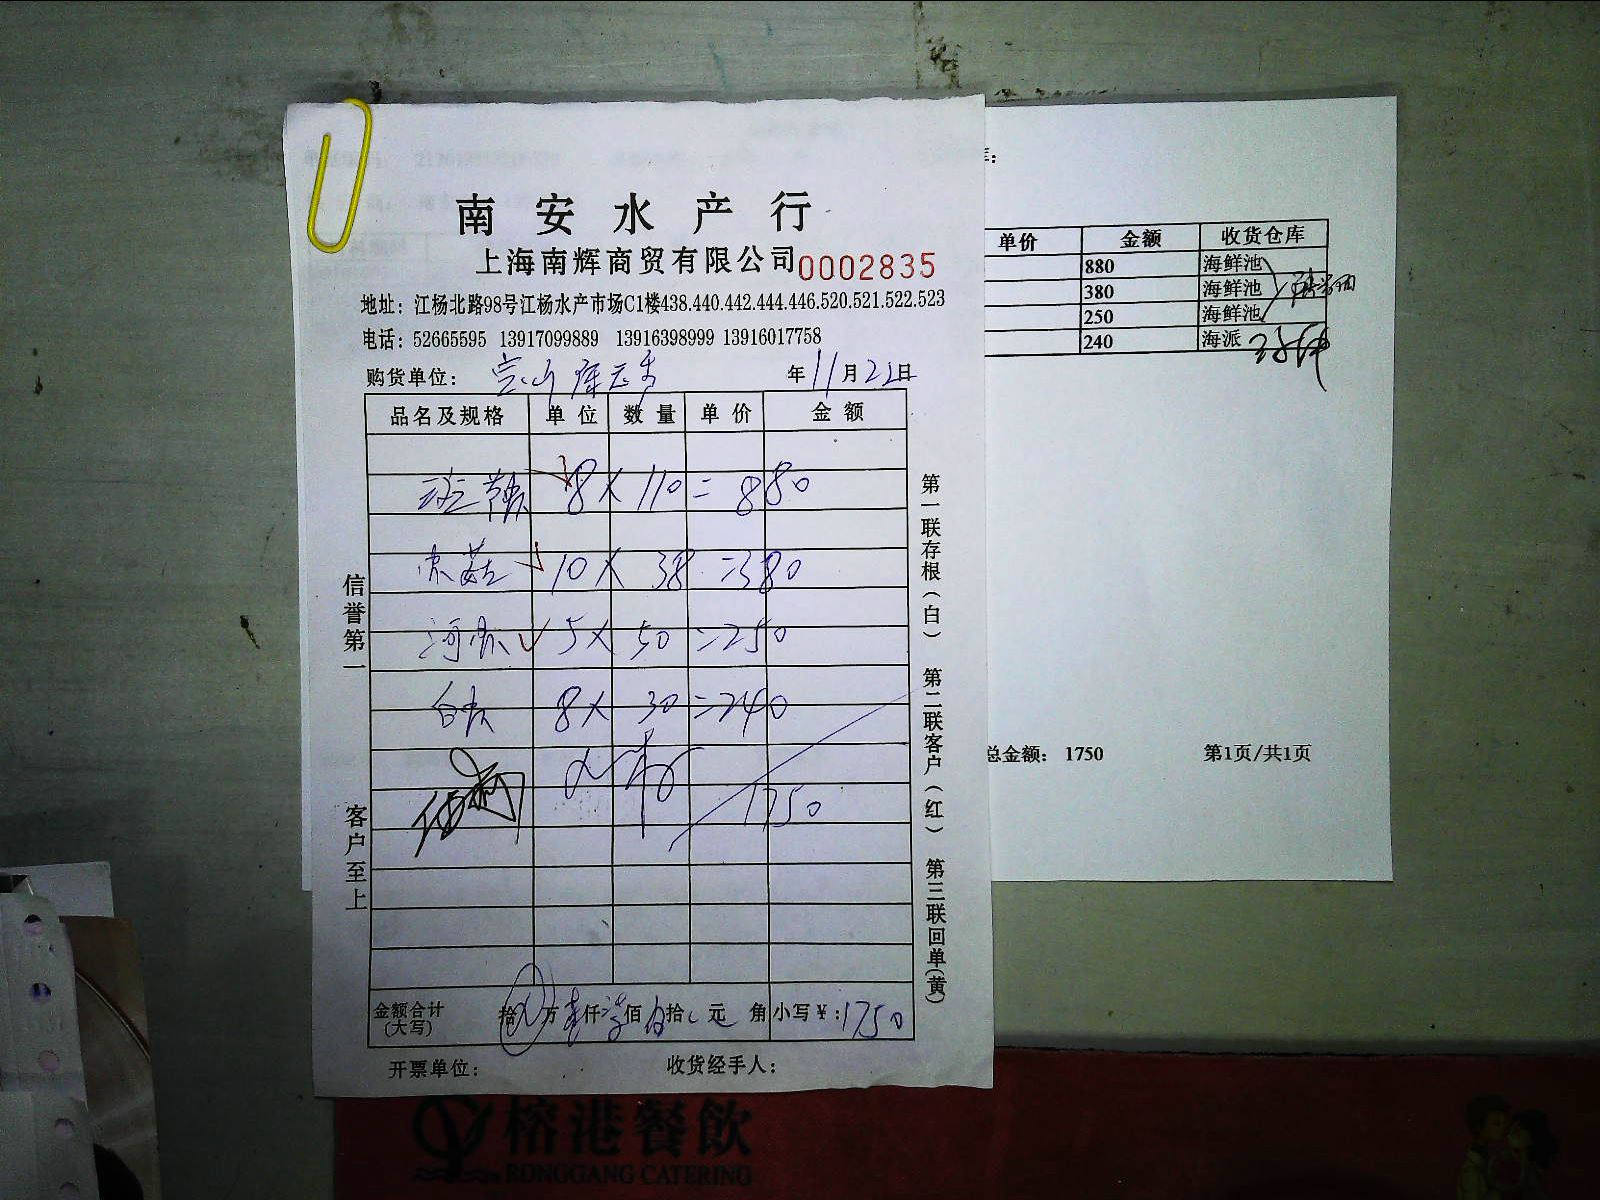 南安水产行
上海南辉商贸有限公司 0002835
地址：江杨北路98号江杨水产市场C1楼438.440.442.444.446.520.521.522.523
电话：52665595 13917099889 13916398999 13916017758
购货单位： 年11月22日
品名及规格 单位 数量 单价 金额
8×110=880
10×38=380
5×50=250
白 8×30=240
1750
金额合计(大写) 拾 万 仟 佰 拾 元 角 小写￥：1750
开票单位： 收货经手人：
信誉第一
客户至上
第一联存根（白） 第二联客户（红） 第三联回单（黄）
单价 金额 收货仓库
880 海鲜池
380 海鲜池
250 海鲜池
240 海派
总金额： 1750 第1页/共1页
榕港餐飲
RONGGANG CATERING